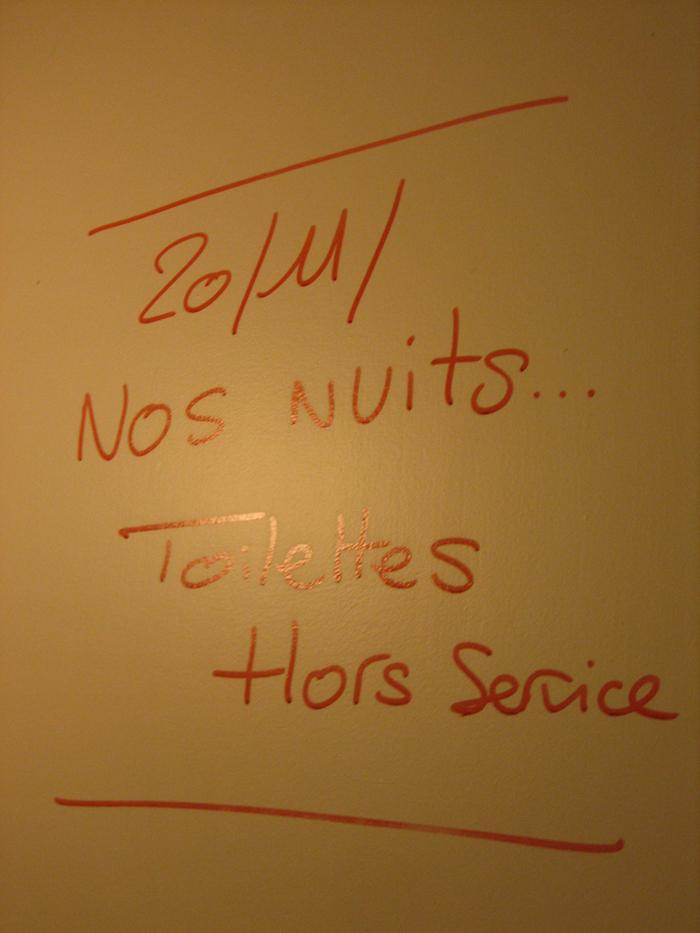 20/11/
Nos nuits...
Toilettes
Hors Service